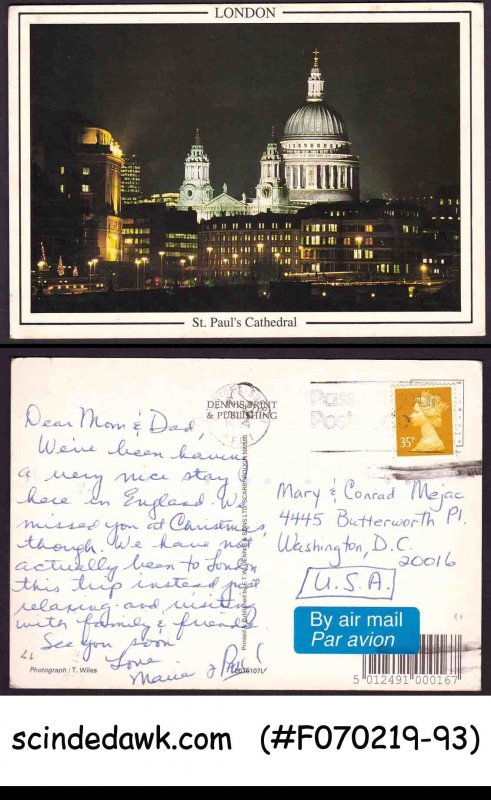 LONDON
St. Paul's Cathedral
DENNIS PRINT
& PUBLISHING
Dear Mom & Dad,
We've been having
a very nice stay
here in England. We
missed you at Christmas,
though. We have not
actually been to London
this trip instead just
relaxing and visiting
with family & friends
See you soon
Love
Maria & Paul
Photograph: T. Wiles
35P
Mary & Conrad Mejac
4445 Butterworth Pl.
Washington, D.C.
20016
U.S.A.
By air mail
Par avion
5 012491 000167
scindedawk.com (#F070219-93)